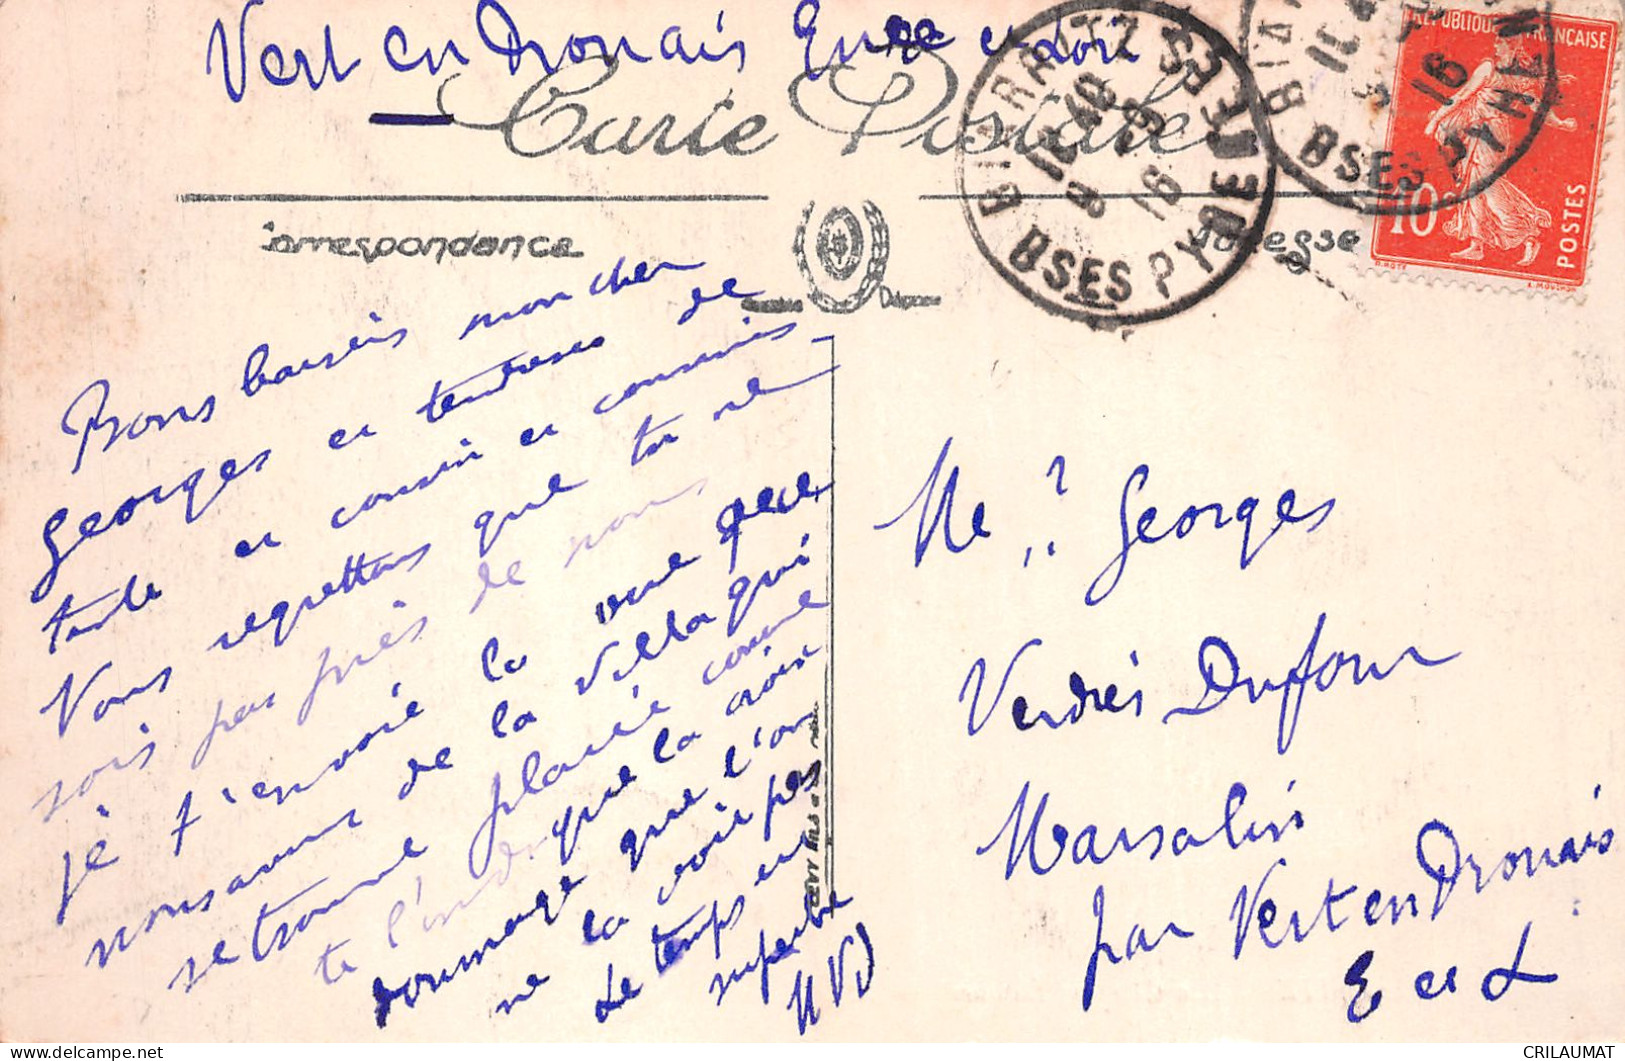 Vert en Drouais Eure et Loir
Carte Postale
Correspondance
Adresse
BIARRITZ
16 40
9 - 9
16
BSES PYRENEES
16
BSES PY
RÉPUBLIQUE FRANÇAISE
10c
POSTES
Bons baisers mon cher
Georges et tendresses de
tante et cousin et cousines
Nous regrettons que tu ne
sois pas près de nous
je t'envoie la vue que
nous avons de la villa qui
se trouve placée comme
te l'indique la croix
dommage que l'on
ne la voie pas
Le temps est
superbe
Me Georges
Verdier Dufour
Marsalin
par Vert en Drouais
E et L
CRILAUMAT